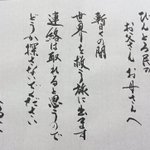 びんとろ民の
お父さんお母さんへ
暫くの間
世界を救う旅に出ます
連絡は取れると思うので
どうか探さないでください